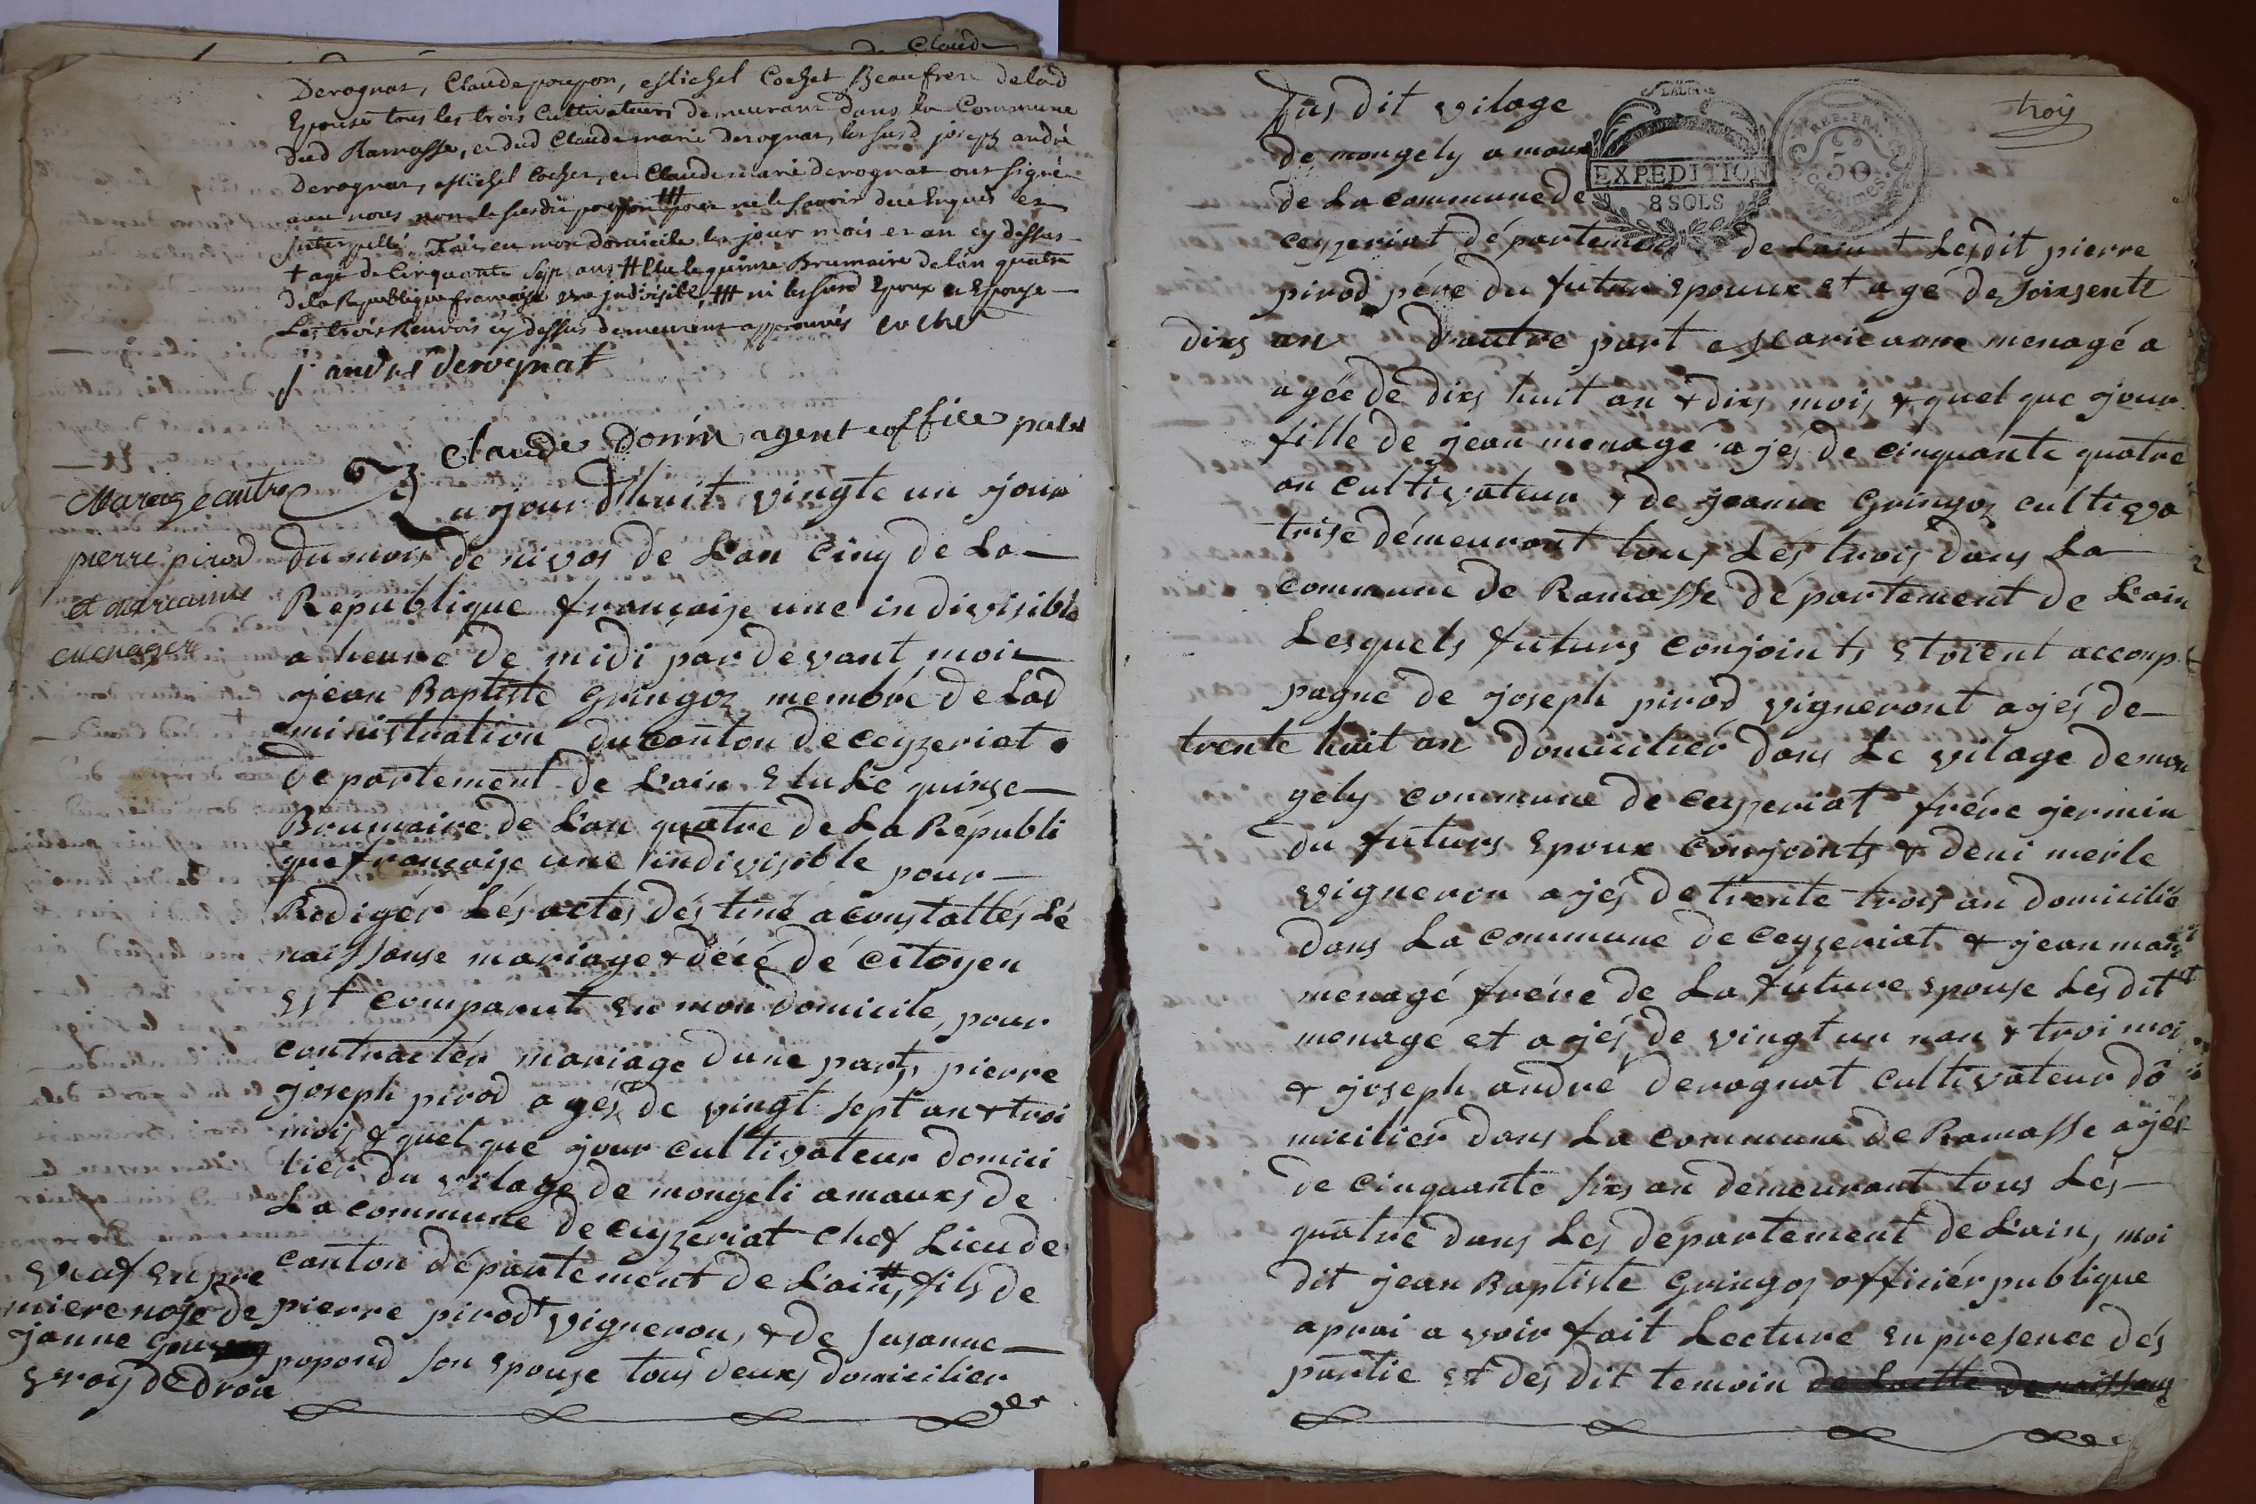 de Claude
Derognat, Claude poupon, Michel Cochet Beaufrere delad
Epouse tous les trois Cultivateurs demeurant dans la Commune
dud Ramasse, et dud Claude marie derognat, les susd joseph andré
Derognat, Michel Cochet, et Claude marie derognat ont signé
avec nous non le susdit poupon ⧻ pour ne le savoir de ce Enquis et
Interpellé. Fait en mon domicile les jour mois et an cy dessus
† agé de Cinquante sept ans ⧺ Elu le quinze Brumaire de lan quatre
de la Republique francaise une indivisible ⧻ ni les susd Epoux et Epouse
Les trois Renvois cy dessus demeurent approuvés cochet
j. andré derognat
Claude Donin agent officier public
Mariage entre
pierre pirod
et marianne
menager
aujourd'huit vingte un jour
du mois de nivos de L'an Cinq de La
Republique françoise une indivisible
a heure de midi par devant moi
jean Baptiste Gringoz membre de Lad
ministration du canton de ceyzeriat
departement de L'ain Elu Le quinze
Brumaire de L'an quatre de La Républi
que françoise une indivisible pour
Redigér Lés actes dés tiné a constattés Lé
naissanse mariage & décé dé citoyen
Est comparut en mon domicile, pour
contractér mariage dune part, pierre
joseph pirod agés de vingt sept an & troi
mois & quel que jour cultivateur domici
lier du vilage de mongeli amauxs de
La commune de ceyzeriat chef Lieu de
canton département de L'ain, ⧺ fils de
pierre pirod vigneron, & de susanne
popond son epouse tous deuxs domicilier
veuf en pre
miere nose de
janne
vroy
EXPEDITION
8 SOLS
REP. FRA.
50
centimes
troy
sus dit vilage
de mongely amaux
de La commune de
ceyzeriat département de Lain † Lesdit pierre
pirod pére du futur epouux et agé de soixsente
dixs an d'autre part Marieanne menagé a
agée de dixs huit an & dixs mois & quel que jour
fille de jean menagé ajés de cinquante quatre
an cultivateur & de jeanne Gringoz cultiva
trise démeurant tous Lés trois dans La
commune de Ramasse département de L'ain
Lesquels futurs conjoints etoient accomp
pagné de joseph pirod vigneront ajés de
trente huit an domicilier dans Le vilage de mon
gely commune de ceyzeriat frére germin
du futurs epoux conjoints & deni merle
vigneron ajés de trente trois an domicilié
dans La commune de ceyzeriat & jean marie
menagé frére de La future epouse Les dit
menagé et ajés de vingt un nan & troi moi
& joseph andré derognat cultivateur do
micilier dans La commune de Ramasse ajés
de cinquante sixs an demeurant tous Lés
quatre dans Les département de L'ain, moi
dit jean Baptiste Gringoz officiér publique
aprai avoir fait Lecture en presence dés
partie et dés dit temoin de Lactte de naissanse